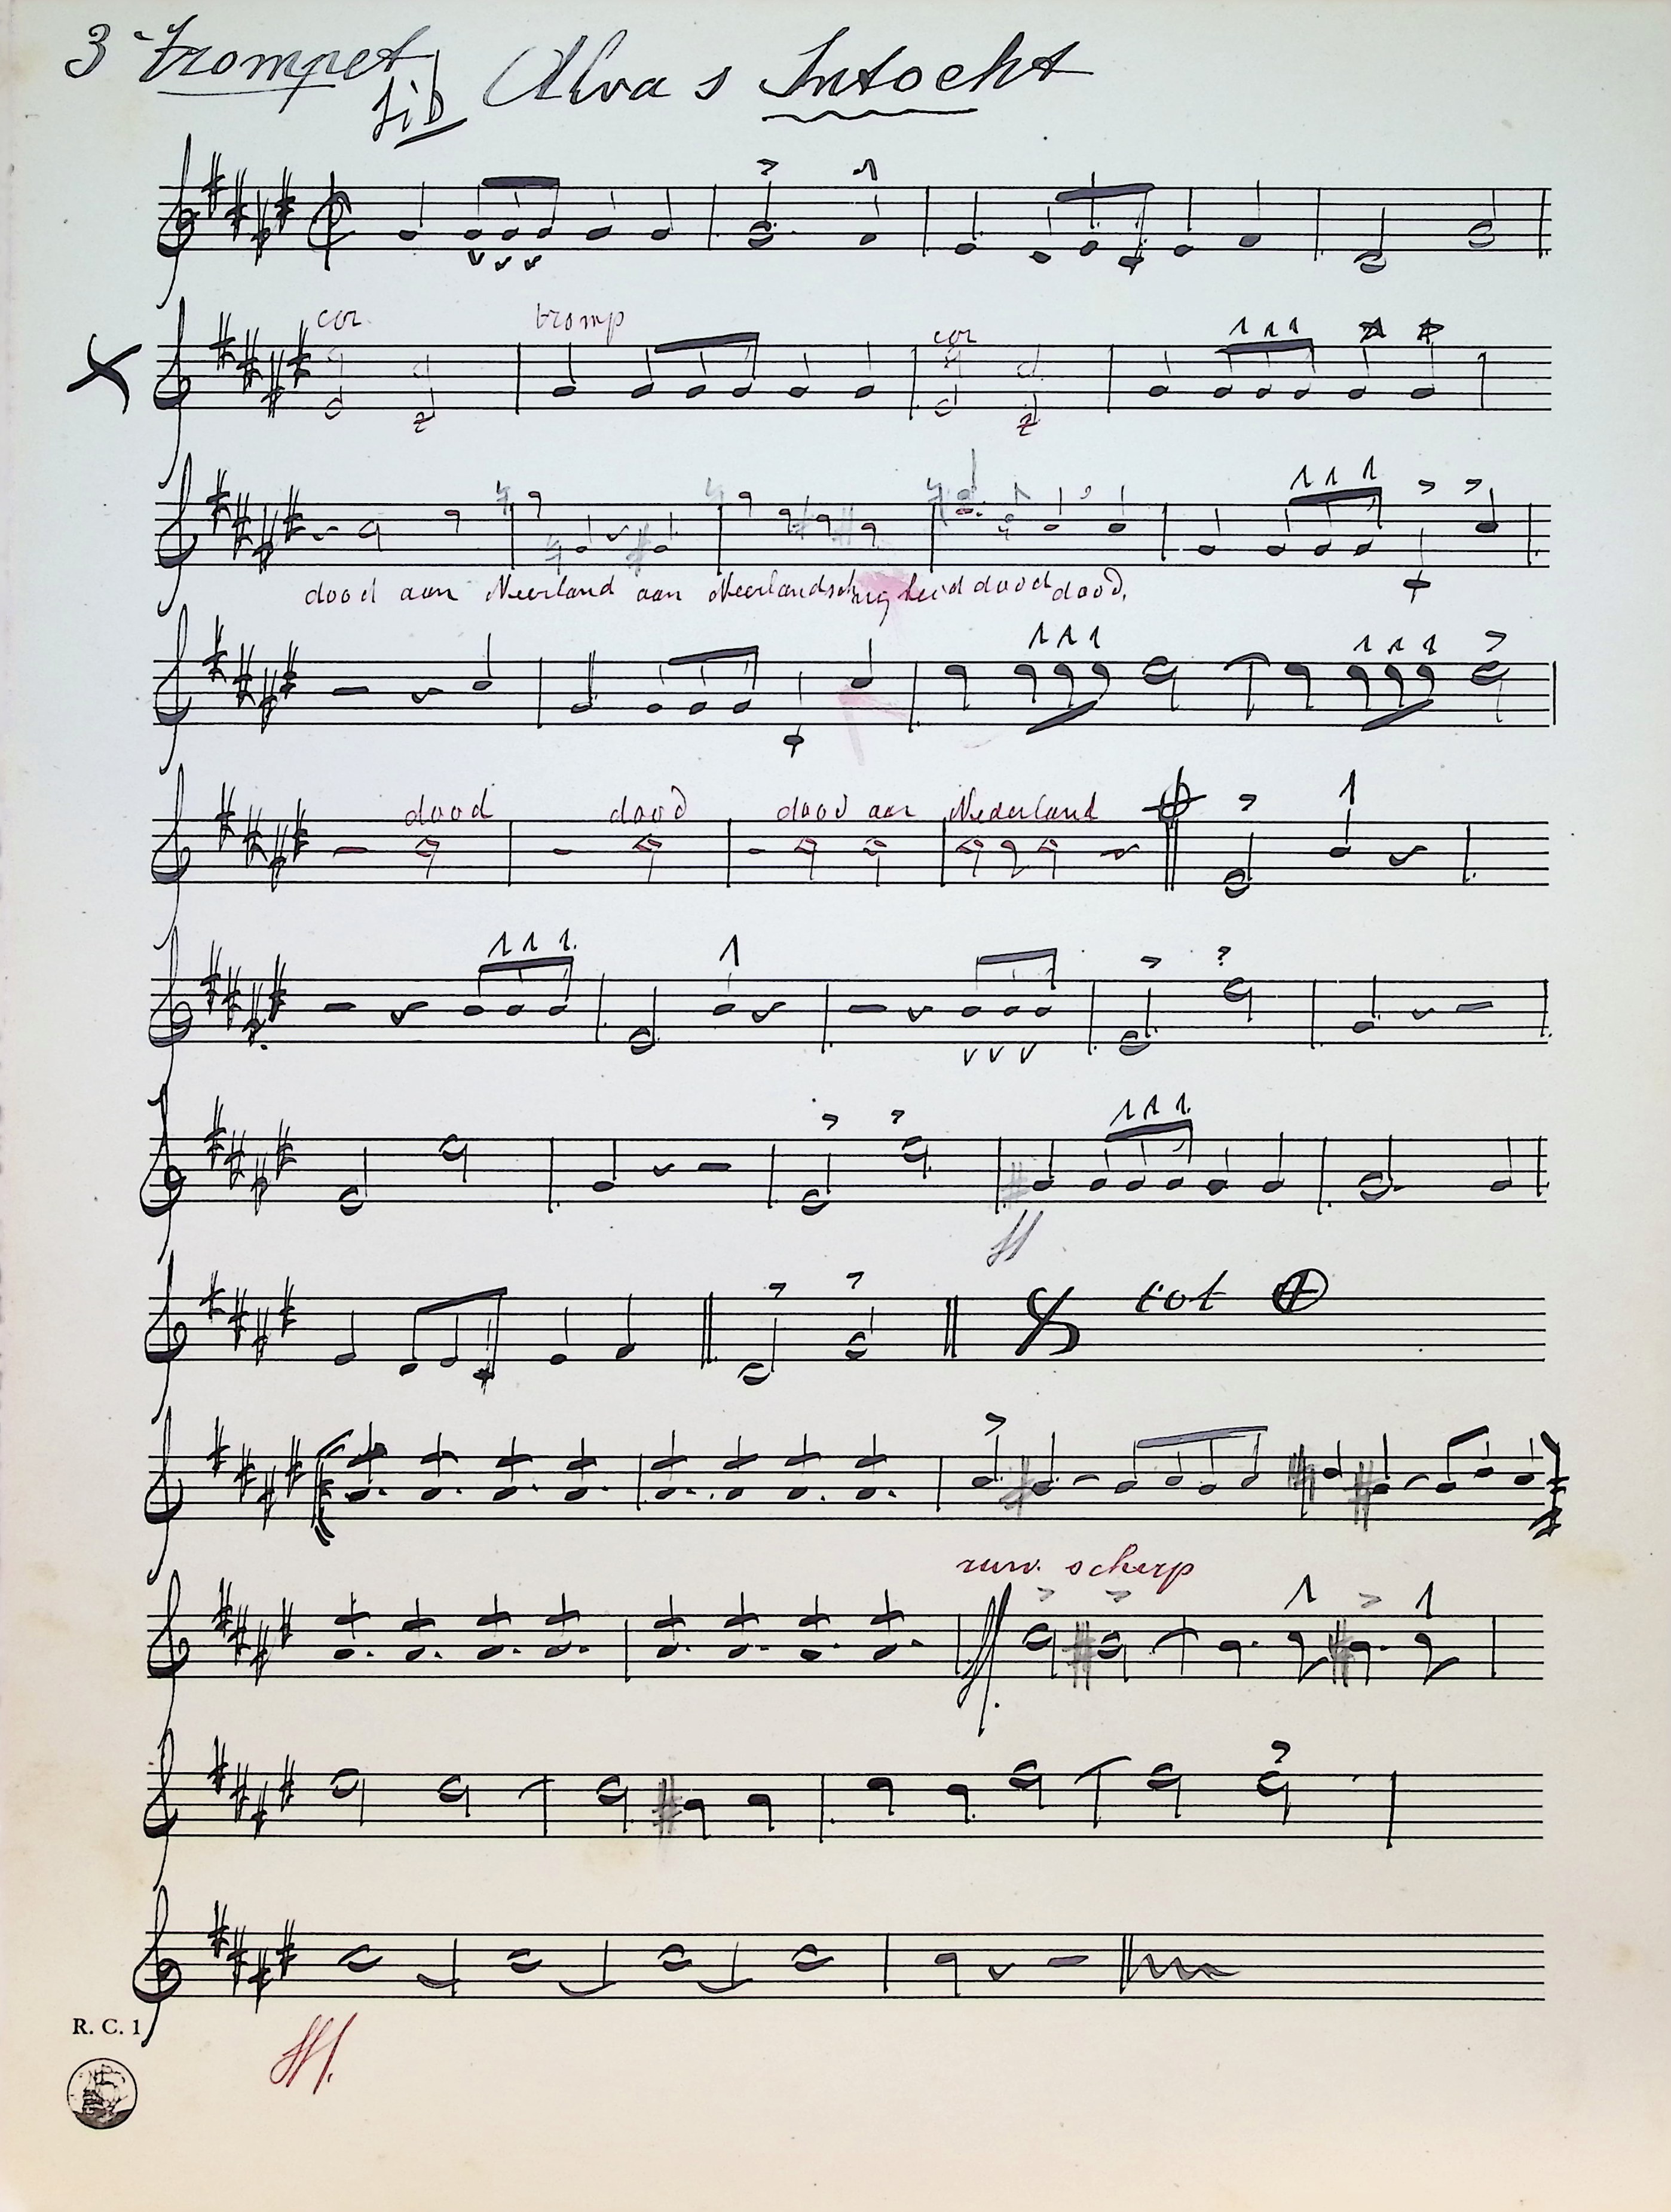 3e trompet
Alva's Intocht
cor. tromp cor
dood aan Neerland aan Neerlandsch dood dood,
dood dood dood aan Nederland
ff
tot
scherp
ff.
fff.
R. C. 1